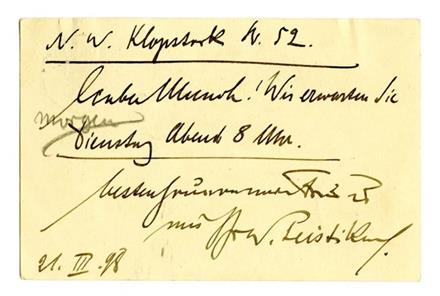 N. W. Klopstock St. 52.
Lieber Munch! Wir erwarten Sie
morgen
Dienstag Abend 8 Uhr.
besten
W. Leistikow.
21. III. 98